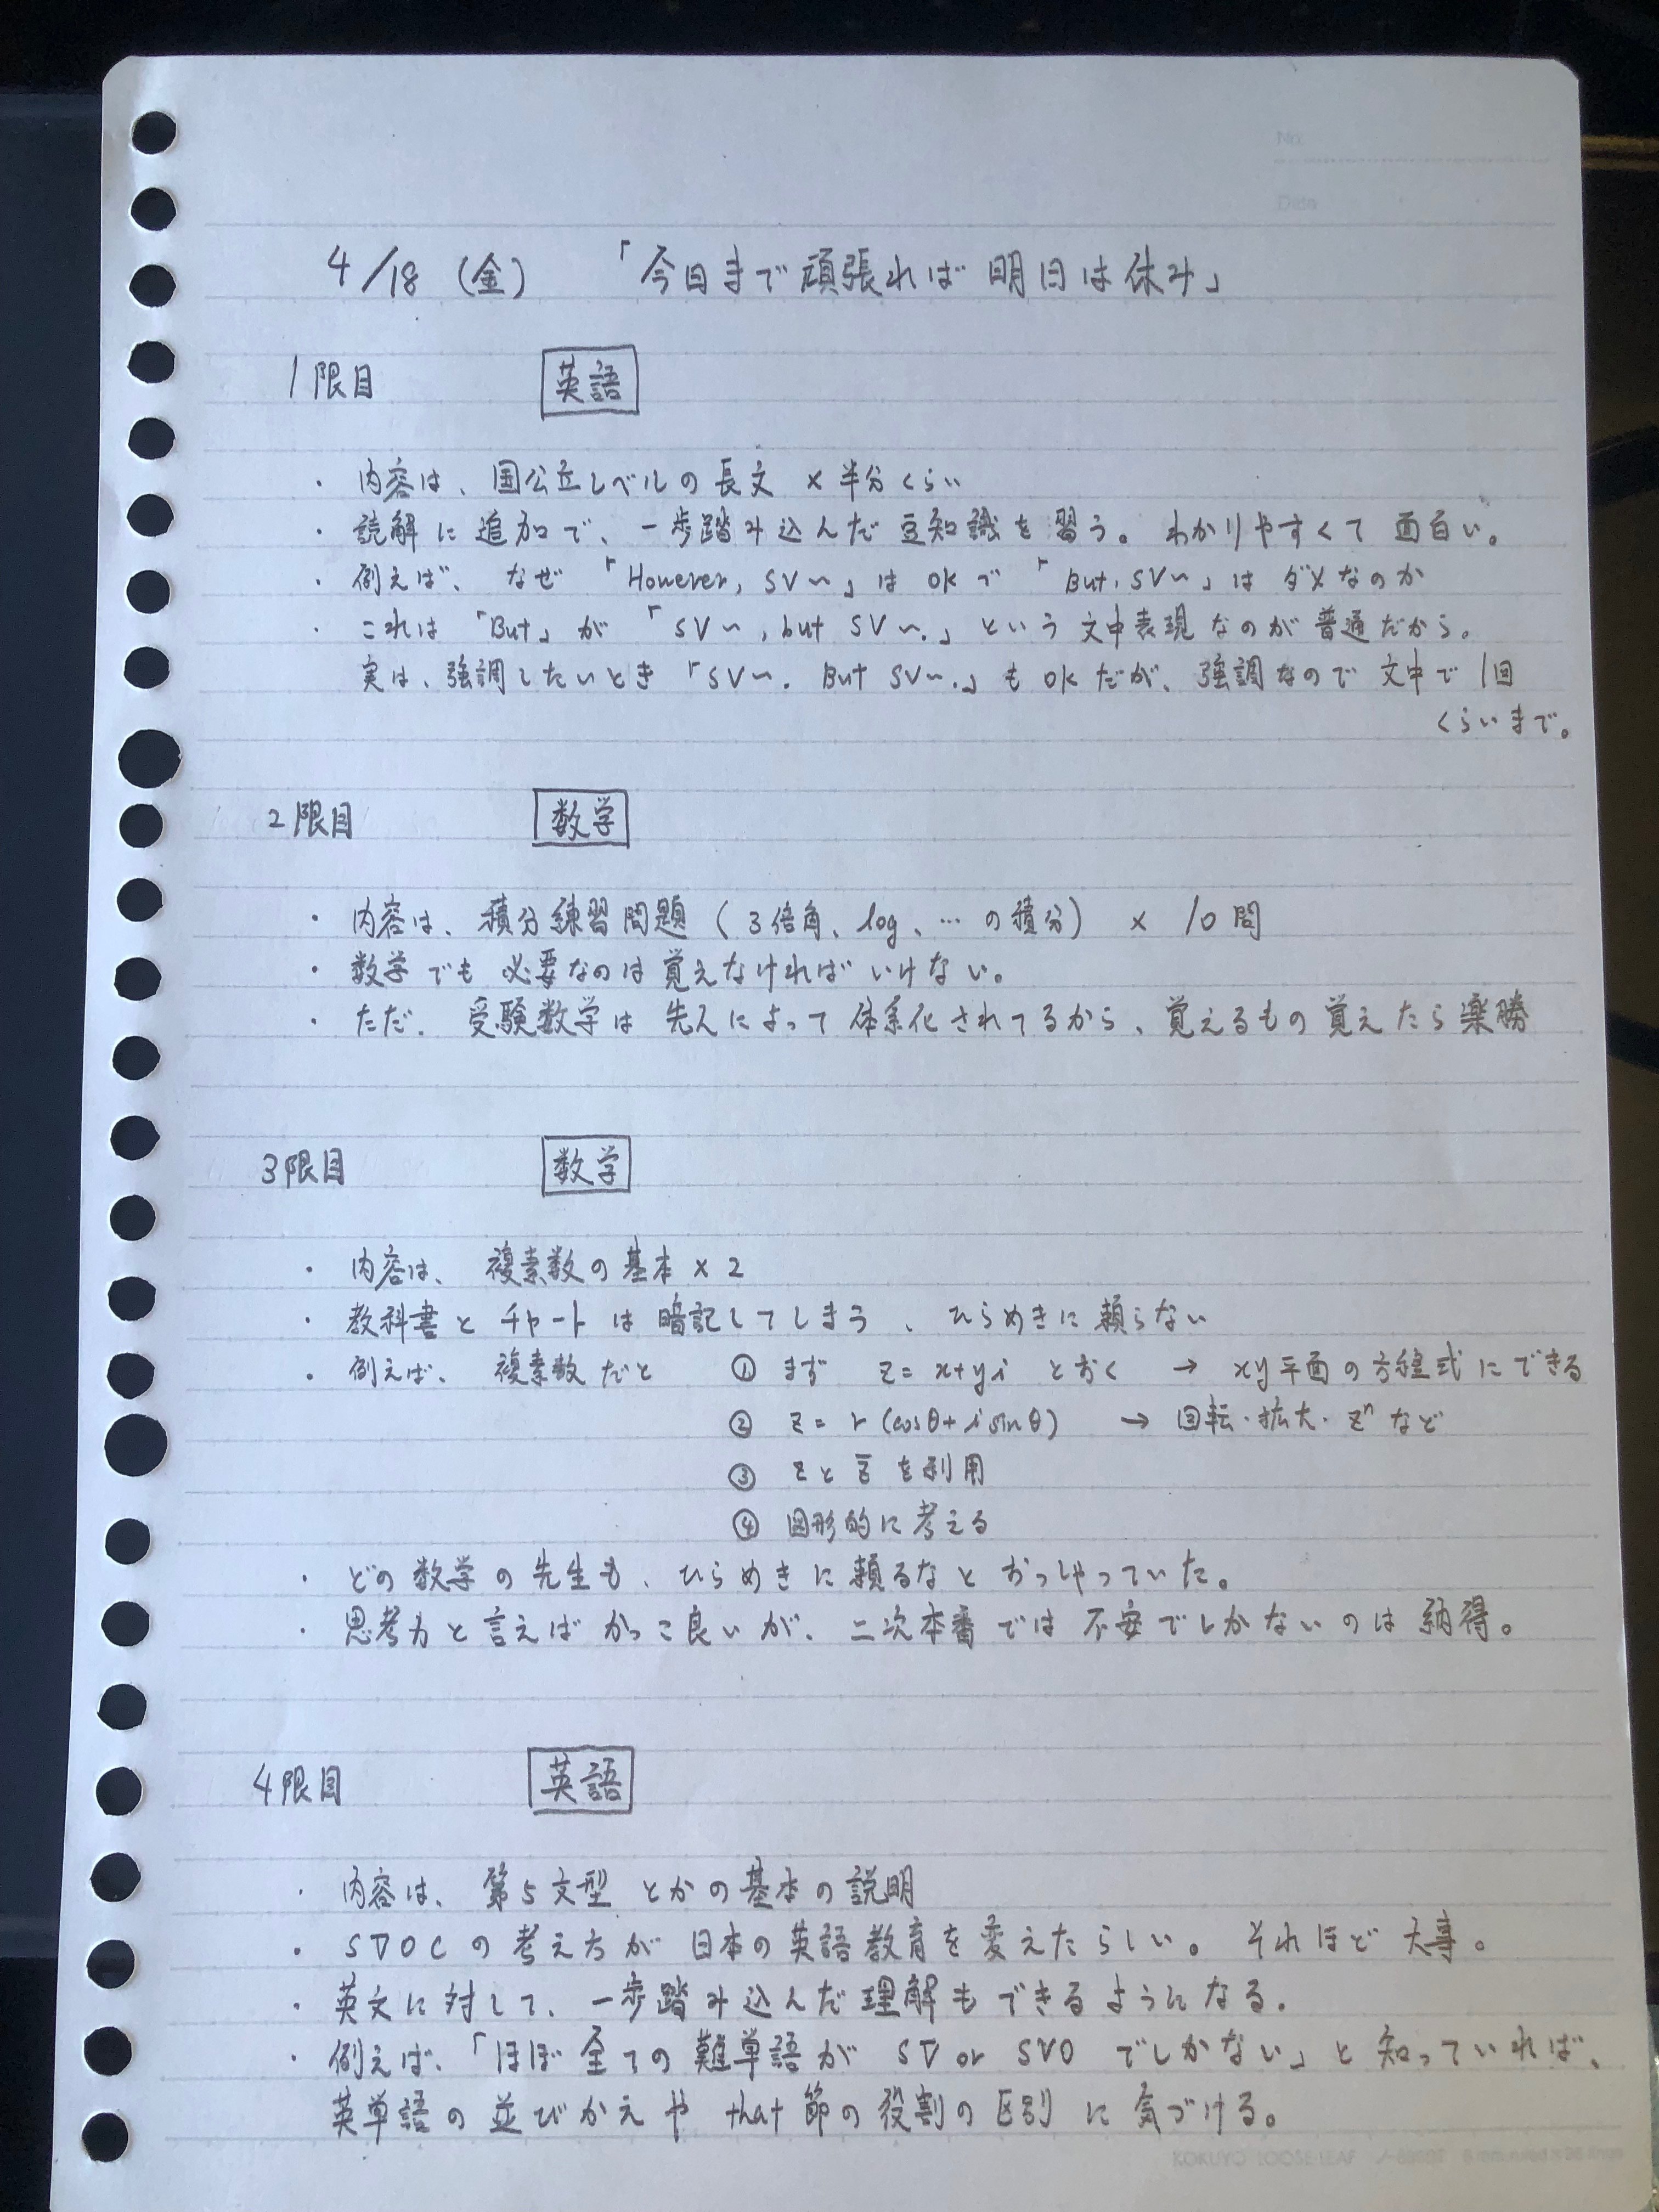 No.
Date
4/18 (金) 「今日まで頑張れば明日は休み」
1限目 英語
・内容は、国公立レベルの長文 × 半分くらい
・読解に追加で、一歩踏み込んだ豆知識を習う。わかりやすくて面白い。
・例えば、なぜ「However, SV〜」はOKで「But, SV〜」はダメなのか
・これは「But」が「SV〜, but SV〜.」という文中表現なのが普通だから。
実は、強調したいとき「SV〜. But SV〜.」もOKだが、強調なので文中で1回
くらいまで。
2限目 数学
・内容は、積分練習問題 (3倍角、log、…の積分) × 10問
・数学でも必要なのは覚えなければいけない。
・ただ、受験数学は先人によって体系化されてるから、覚えるもの覚えたら楽勝
3限目 数学
・内容は、複素数の基本×2
・教科書とチャートは暗記してしまう、ひらめきに頼らない
・例えば、複素数だと ① まず z=x+yi とおく → xy平面の方程式にできる
② z=r(cosθ+i sinθ) → 回転・拡大・zⁿなど
③ zとz̅を利用
④ 図形的に考える
・どの数学の先生も、ひらめきに頼るなとおっしゃっていた。
・思考力と言えばかっこ良いが、二次本番では不安でしかないのは納得。
4限目 英語
・内容は、第5文型とかの基本の説明
・SVOCの考え方が日本の英語教育を変えたらしい。それほど大事。
・英文に対して、一歩踏み込んだ理解もできるようになる。
・例えば、「ほぼ全ての難単語がSV or SVOでしかない」と知っていれば、
英単語の並びかえやthat節の役割の区別に気づける。
KOKUYO LOOSE-LEAF